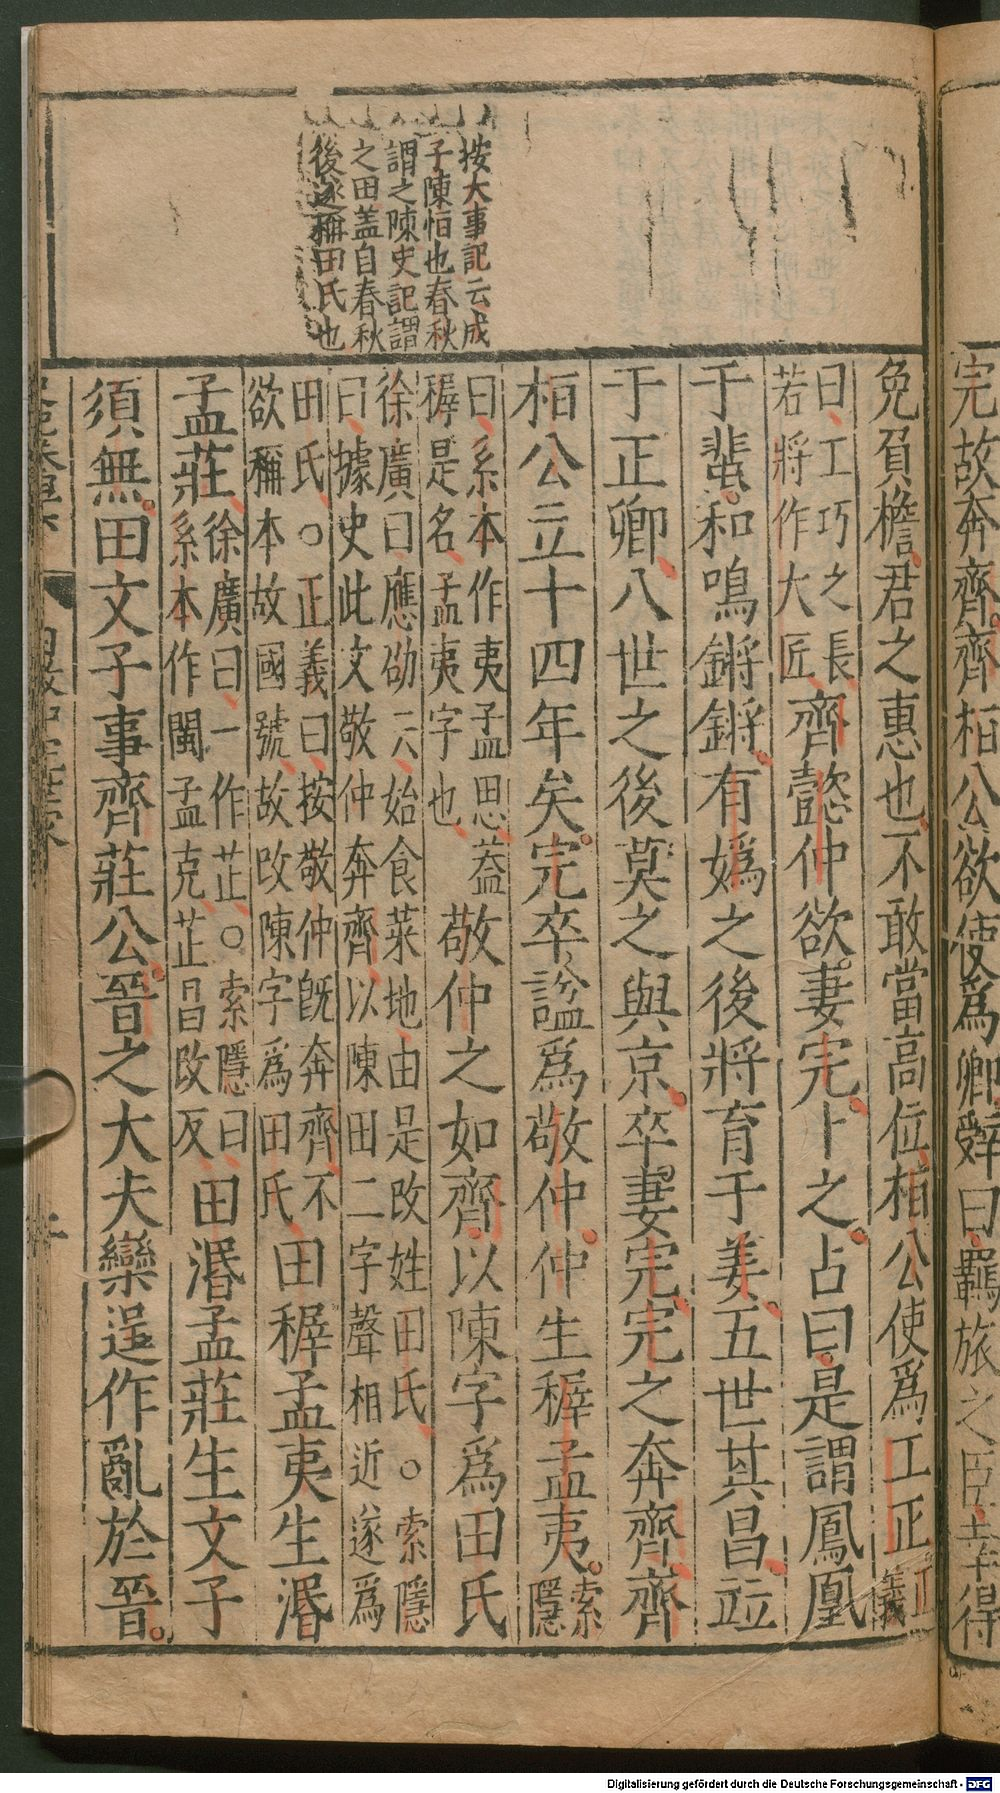 完故奔齊齊桓公欲使爲卿辭曰羈旅之臣幸得
按大事記云成
子陳恒也春秋
謂之陳史記謂
之田盖自春秋
後遂稱田氏也
免負檐君之惠也不敢當高位桓公使爲工正正義
曰工巧之長
若將作大匠齊懿仲欲妻完卜之占曰是謂鳳凰
于蜚和鳴鏘鏘有媯之後將育于姜五世其昌竝
于正卿八世之後莫之與京卒妻完完之奔齊齊
桓公立十四年矣完卒諡爲敬仲仲生穉孟夷索隱
曰系本作夷孟思蓋
穉是名孟夷字也敬仲之如齊以陳字爲田氏
徐廣曰應劭云始食菜地由是改姓田氏○索隱
曰據史此文敬仲奔齊以陳田二字聲相近遂爲
田氏○正義曰按敬仲旣奔齊不
欲稱本故國號故改陳字爲田氏田穉孟夷生湣
孟莊徐廣曰一作芷○索隱曰
系本作閩孟克芷昌改反田湣孟莊生文子
須無田文子事齊莊公晉之大夫欒逞作亂於晉
Digitalisierung gefördert durch die Deutsche Forschungsgemeinschaft - DFG